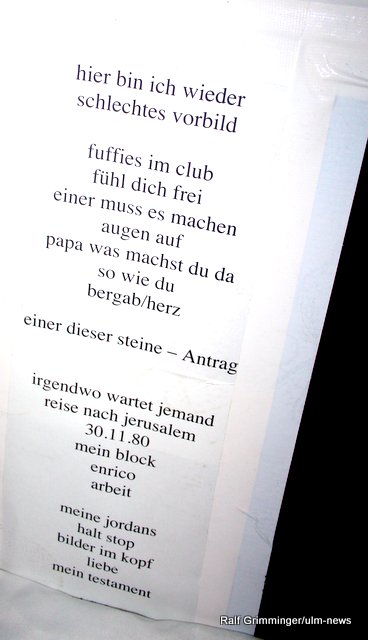 hier bin ich wieder
schlechtes vorbild
fuffies im club
fühl dich frei
einer muss es machen
augen auf
papa was machst du da
so wie du
bergab/herz
einer dieser steine – Antrag
irgendwo wartet jemand
reise nach jerusalem
30.11.80
mein block
enrico
arbeit
meine jordans
halt stop
bilder im kopf
liebe
mein testament
Ralf Grimminger/ulm-news